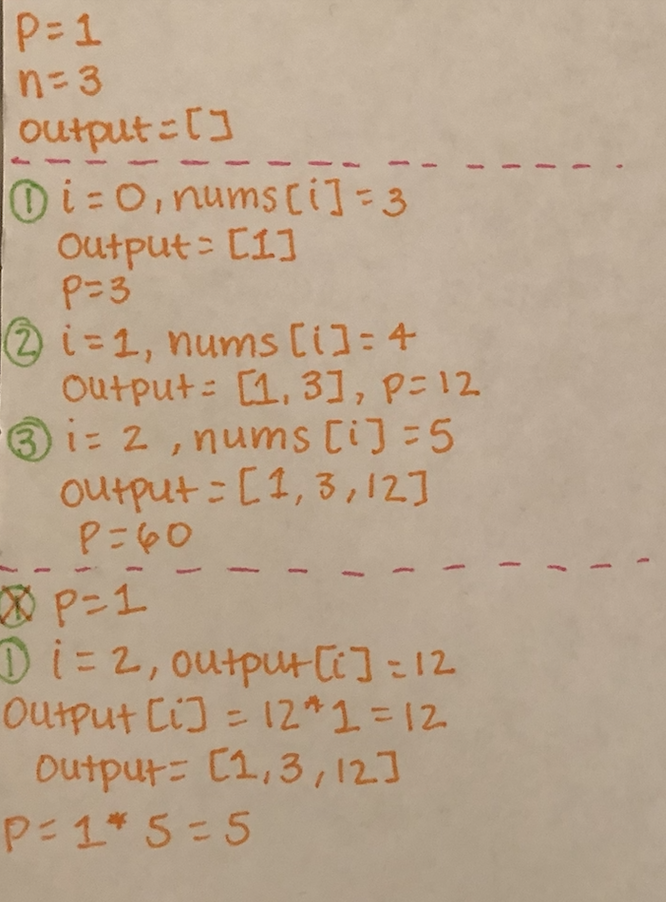 p=1
n=3
output=[]
① i=0, nums[i]=3
output=[1]
p=3
② i=1, nums[i]=4
output=[1,3], p=12
③ i=2, nums[i]=5
output=[1,3,12]
p=60
p=1
① i=2, output[i]=12
output[i]=12*1=12
output=[1,3,12]
p=1*5=5